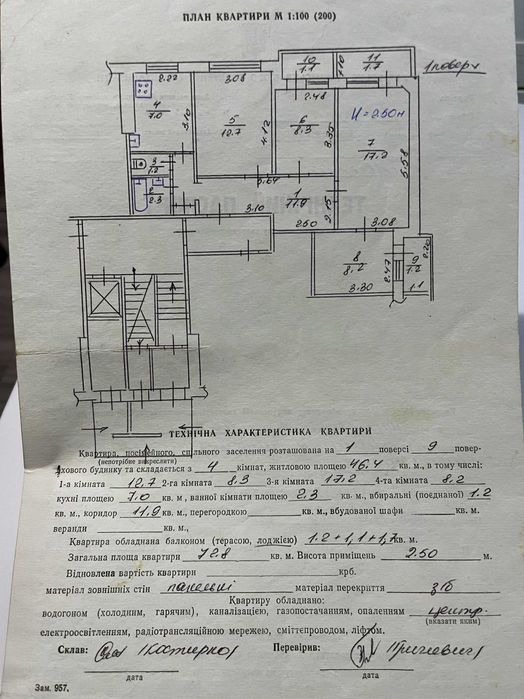 ПЛАН КВАРТИРИ М 1:100 (200)
1 поверх
10
1.1
1.10
11
1.7
2.22
3.08
2.48
H=2.50м
4
7.0
3.10
5
12.7
4.12
6
8.3
3.35
7
17.2
5.58
3
1.2
2
2.3
2.64
1
11.9
2.15
3.10
2.50
3.08
8
8.2
2.47
9
1.2
2.20
3.30
1.1
ТЕХНІЧНА ХАРАКТЕРИСТИКА КВАРТИРИ
Квартира, посімейного, спільного заселення розташована на 1 поверсі 9 повер-
(непотрібне викреслити)
хового будинку та складається з 4 кімнат, житловою площею 46.4 кв. м., в тому числі:
1-а кімната 12.7 2-га кімната 8.3 3-я кімната 17.2 4-та кімната 8.2
кухні площею 7.0 кв. м., ванної кімнати площею 2.3 кв. м., вбиральні (поєднаної) 1.2
кв. м., коридор 11.9 кв. м., перегородкою кв. м., вбудованої шафи кв. м.,
веранди кв. м.,
Квартира обладнана балконом (терасою, лоджією) 1.2+1,1+1,7 кв. м.
Загальна площа квартири 72.8 кв. м. Висота приміщень 2.50 м.
Відновлена вартість квартири крб.
матеріал зовнішніх стін панельні матеріал перекриття з/б
Квартиру обладнано:
водогоном (холодним, гарячим), каналізацією, газопостачанням, опаленням центр.
(вказати яким)
електроосвітленням, радіотрансляційною мережею, сміттєпроводом, ліфтом.
Склав: Перевірив:
дата дата
Зам. 957.